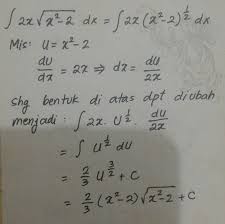 ∫ 2x √(x²-2) dx = ∫ 2x (x²-2)^½ dx
Mis: U = x²-2
du/dx = 2x ⇒ dx = du/2x
Shg bentuk di atas dpt diubah
menjadi : ∫ 2x . U^½ . du/2x
= ∫ U^½ du
= 2/3 U^(3/2) + C
= 2/3 (x²-2) √(x²-2) + C